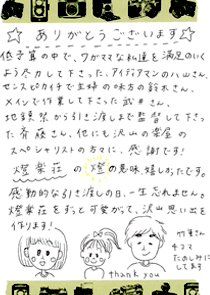 ☆ ありがとうございます ☆
低予算の中、ワガママな私達を満足のいく
よう尽力して下さった、アイディアマンの八山さん、
センスピカイチで主婦の味方の鈴木さん、
メインで作業して下さった武井さん、
地鎮祭から引き渡しまで監督して下さっ
た斉藤さん、他にも沢山の楽屋の
スペシャリストの方々に、感謝です!
燈楽荘の燈の意味、嬉しかったです。
感動的な引き渡しの日、一生忘れません。
燈楽荘をずっと可愛がって、沢山思い出を
作ります!
竹の家
4コマ
たのしみに
してます
thank you